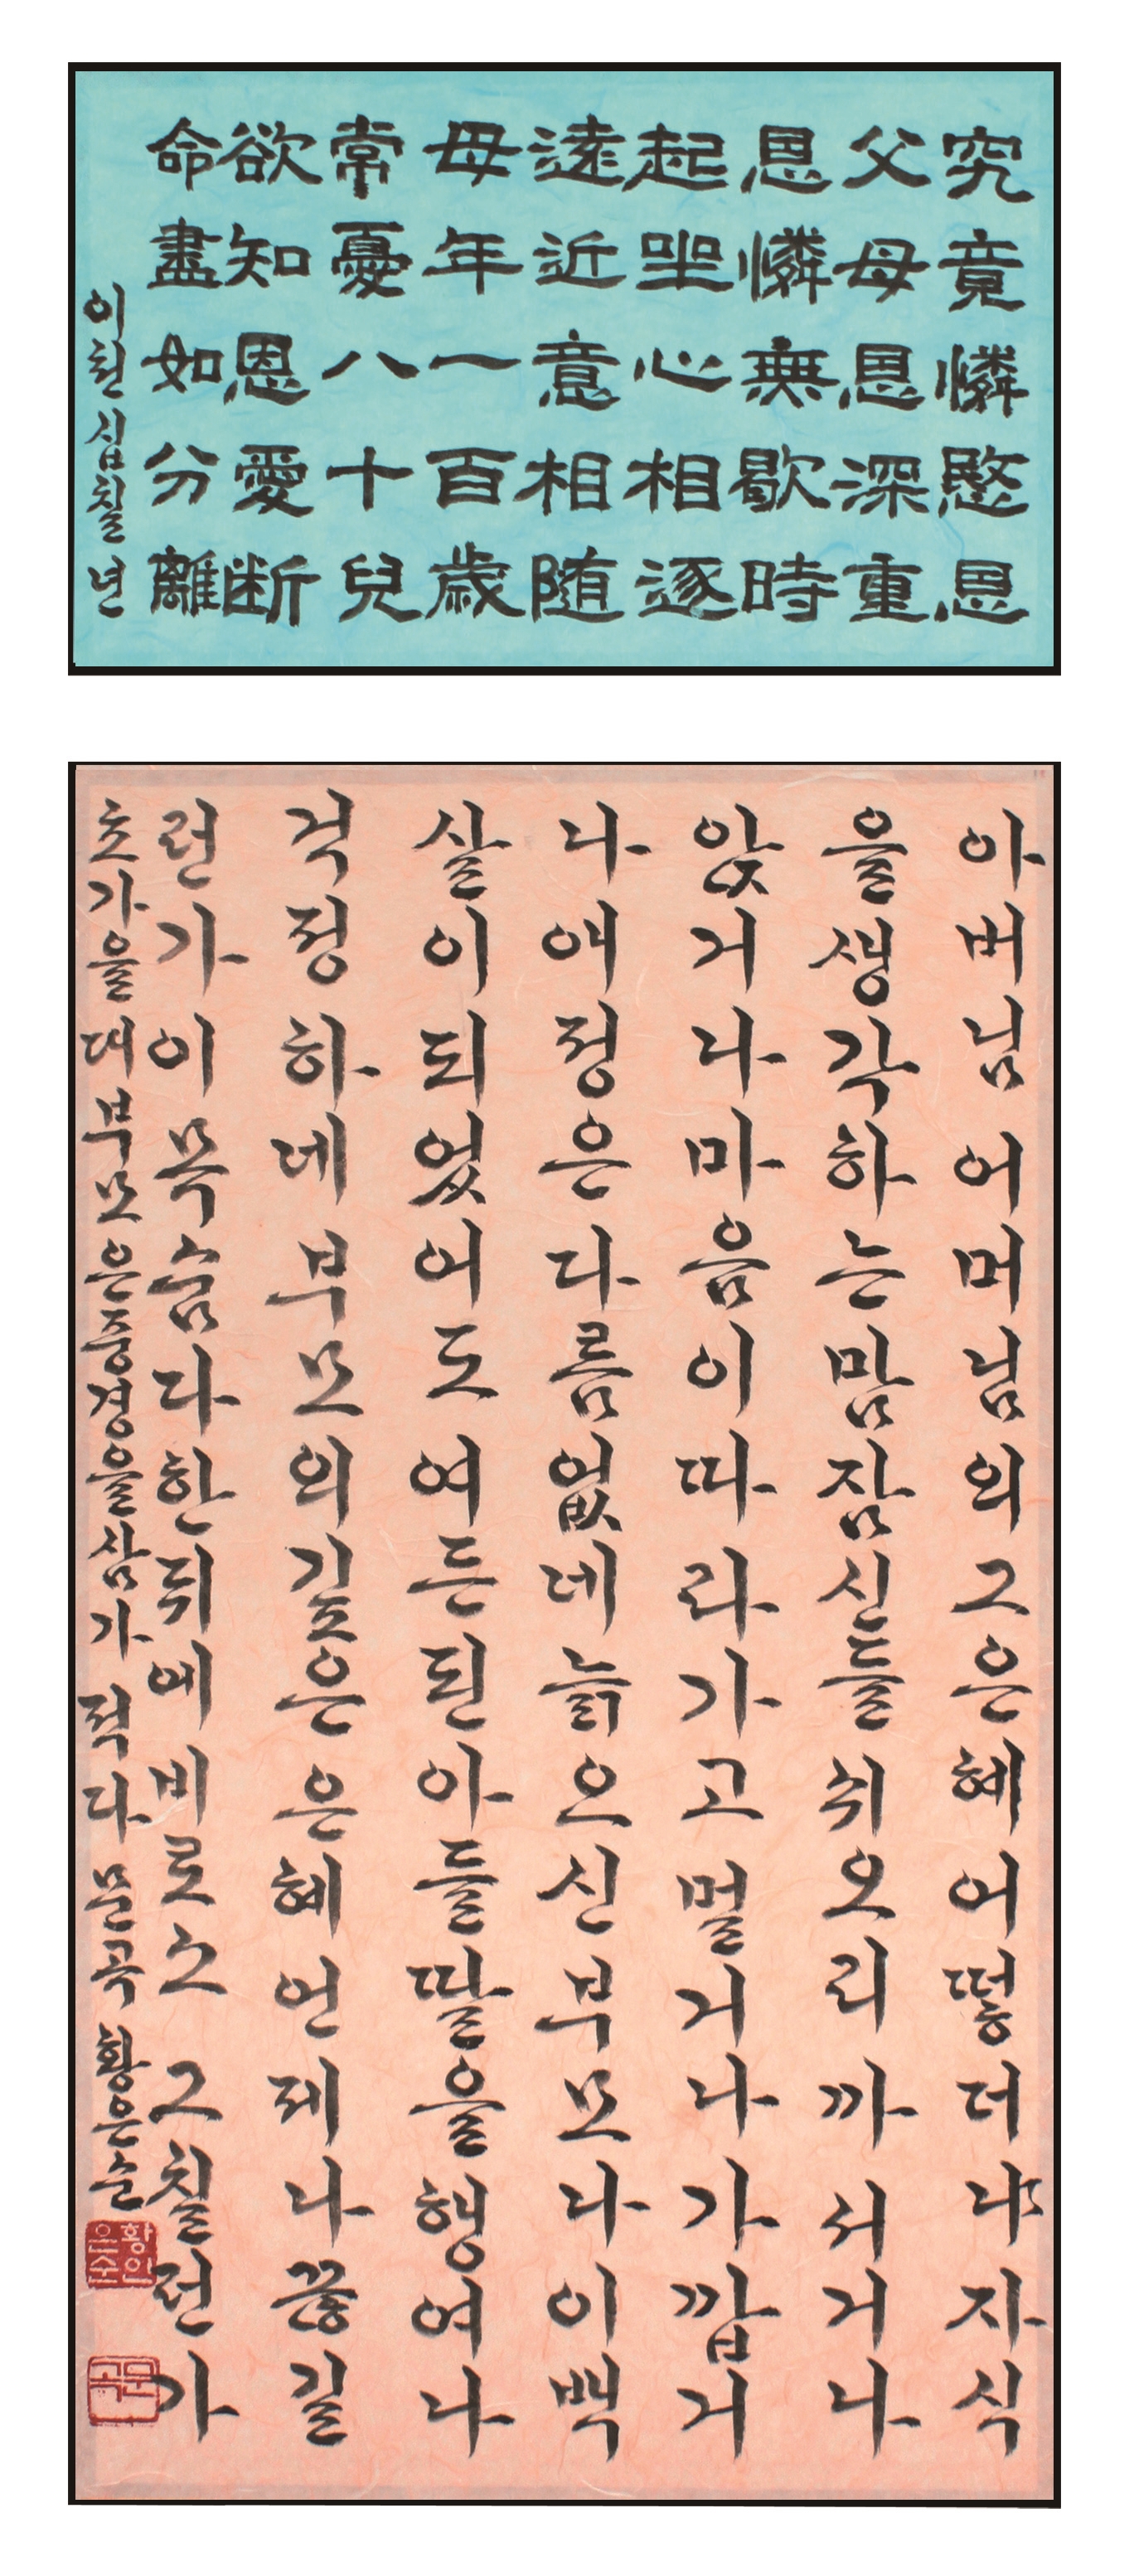 究竟憐愍恩
父母恩深重
恩憐無歇時
起坐心相逐
遠近意相随
母年一百歲
常憂八十兒
欲知恩愛断
命盡如分離
이천십칠년
아버님어머님의그은혜어떻더냐자식
을생각하는맘잠신들쉬오리까서거나
앉거나마음이따라가고멀거나가깝거
나애정은다름없네늙으신부모다이백
살이되었어도여든된아들딸을행여나
걱정하네부모의깊은은혜언제나끊길
런가이목숨다한뒤에비로소그칠런가
초가을대부모은중경을삼가적다문곡황은순
황인은순
문곡